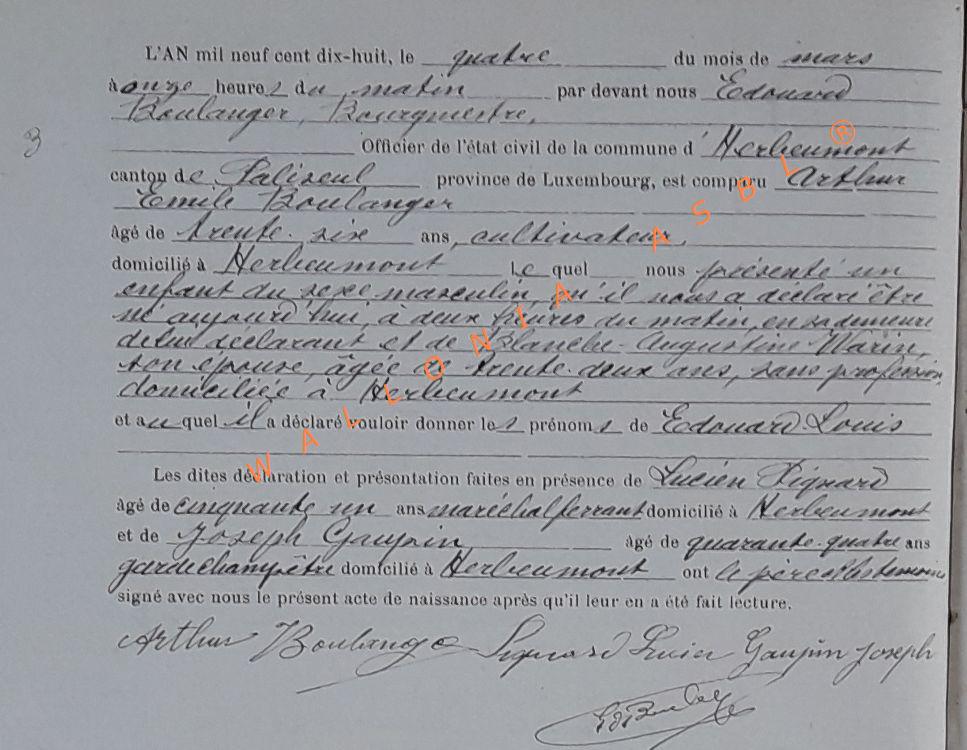 L'AN mil neuf cent dix-huit, le quatre du mois de mars
à onze heures du matin par devant nous Edouard
Boulanger, Bourgmestre,
3
Officier de l'état civil de la commune d'Herbeumont
canton de Paliseul province de Luxembourg, est comparu Arthur
Emile Boulanger
âgé de trente-six ans, cultivateur,
domicilié à Herbeumont lequel nous présenté un
enfant du sexe masculin, qu'il nous a déclaré être
né aujourd'hui, à deux heures du matin, en sa demeure
de lui déclarant et de Blanche-Augustine Marin,
son épouse, âgée de trente-deux ans, sans profession
domiciliée à Herbeumont
et auquel il a déclaré vouloir donner les prénoms de Edouard-Louis
Les dites déclaration et présentation faites en présence de Lucien
âgé de cinquante un ans maréchal ferrant domicilié à Herbeumont
et de Joseph Gaupin âgé de quarante-quatre ans
garde champêtre domicilié à Herbeumont ont le père et les témoins
signé avec nous le présent acte de naissance après qu'il leur en a été fait lecture.
Arthur Boulanger Lucien Gaupin Joseph
WALLONIA ASBL ®